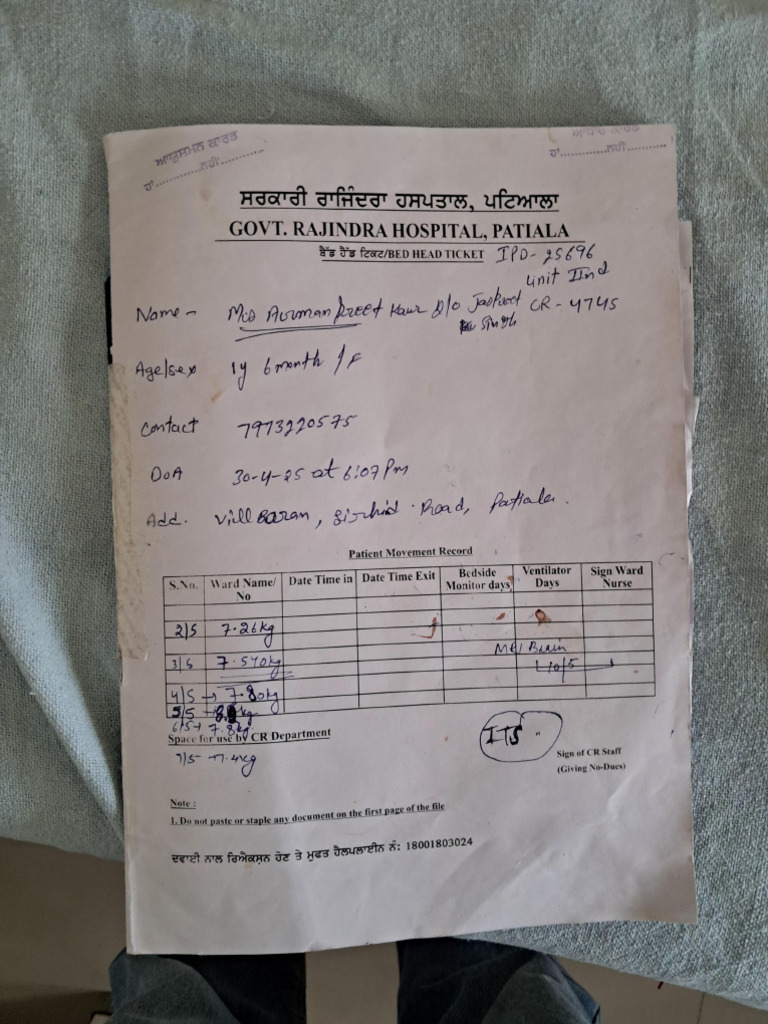 ਆਯੁਸਮਨ ਕਾਰਡ
ਹਾਂ.............ਨਹੀਂ...........
ਆਧਾਰ ਕਾਰਡ
ਹਾਂ.............ਨਹੀਂ...........
ਸਰਕਾਰੀ ਰਾਜਿੰਦਰਾ ਹਸਪਤਾਲ, ਪਟਿਆਲਾ
GOVT. RAJINDRA HOSPITAL, PATIALA
ਬੈੱਡ ਹੈੱਡ ਟਿਕਟ/BED HEAD TICKET IPD- 25696
Unit IInd
Name - Kaur D/o CR - 4745
Singh
Age/sex 1y 6month /F
Contact 7973220575
DoA 30-4-25 at 6:07 Pm
Add. Vill Baran, Sirhind Road, Patiala.
Patient Movement Record
S.No. Ward Name/ No Date Time in Date Time Exit Bedside Monitor days Ventilator Days Sign Ward Nurse
2/5 7.26kg
MRI Brain
3/5 7.570kg 10/5
4/5 → 7.80kg
5/5 kg
6/5 → 7.8kg
Space for use by CR Department
7/5 → 7.4kg
ITS
Sign of CR Staff
(Giving No-Dues)
Note :
1. Do not paste or staple any document on the first page of the file
ਦਵਾਈ ਨਾਲ ਰਿਐਕਸ਼ਨ ਹੋਣ ਤੇ ਮੁਫਤ ਹੈਲਪਲਾਈਨ ਨੰ: 18001803024